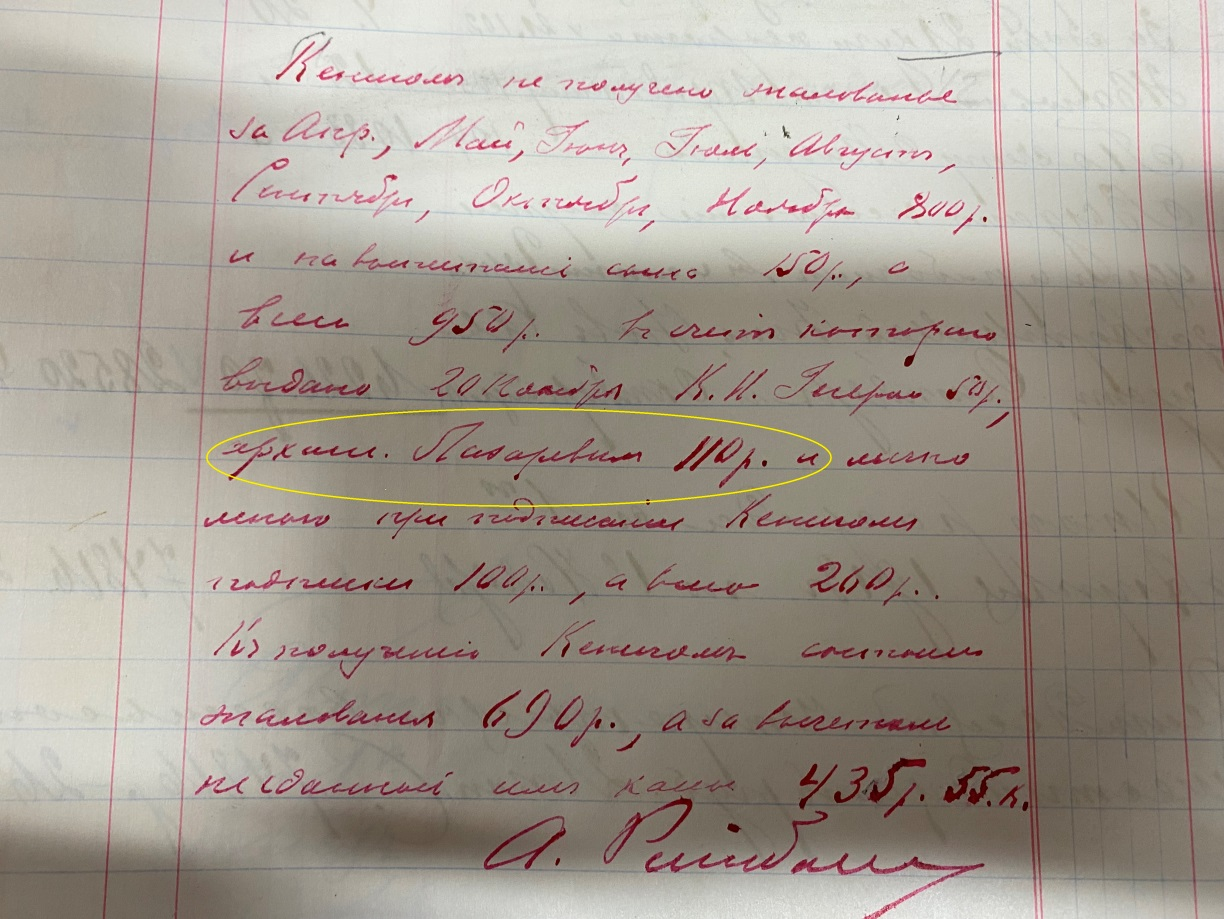 Кенигомъ не получено жалованье
за Апр., Май, Іюнь, Іюль, Августъ,
Сентябрь, Октябрь, Ноябрь 800р.
и на воспитаніе сына 150р., а
всего 950р. въ счетъ котораго
выдано 20 Ноября К. И. 50р.,
Лазаревымъ 110р. и лично
мною при подписаніи Кенигомъ
подписки 100р., а всего 260р.
Къ полученію Кенигомъ состоитъ
жалованья 690р., а за вычетомъ
не сданной имъ кассы 435р. 55.к.
А.